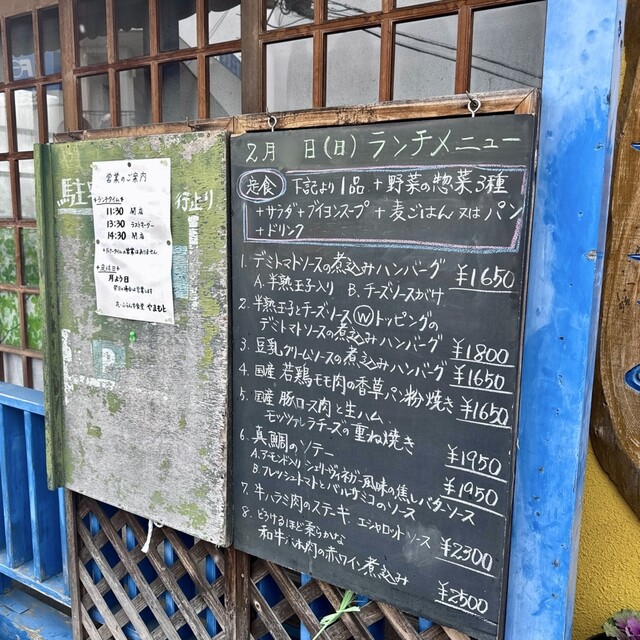 営業のご案内
*ランチタイム*
11:30 開店
13:30 ラストオーダー
14:30 閉店
*ディナータイムの営業はありません
*定休日*
月よう日
やまもと
駐
行止り
P
2月 日(日) ランチメニュー
定食 下記より1品 +野菜の惣菜3種
+サラダ+ブイヨンスープ+麦ごはん又はパン
+ドリンク
1. デミトマトソースの煮込みハンバーグ ¥1650
A. 半熟玉子入り B. チーズソースがけ
2. 半熟玉子とチーズソースⓌトッピングの
デミトマトソースの煮込みハンバーグ ¥1800
3. 豆乳クリームソースの煮込みハンバーグ ¥1650
4. 国産 若鶏モモ肉の香草パン粉焼き ¥1650
5. 国産 豚ロース肉と生ハム
モッツァレラチーズの重ね焼き ¥1950
6. 真鯛のソテー ¥1950
A. アーモンド入り シェリーヴィネガー風味の焦しバターソース
B. フレッシュトマトとバルサミコのソース
7. 牛ハラミ肉のステーキ エシャロットソース ¥2300
8. とろけるほど柔らかな
和牛ホホ肉の赤ワイン煮込み ¥2500